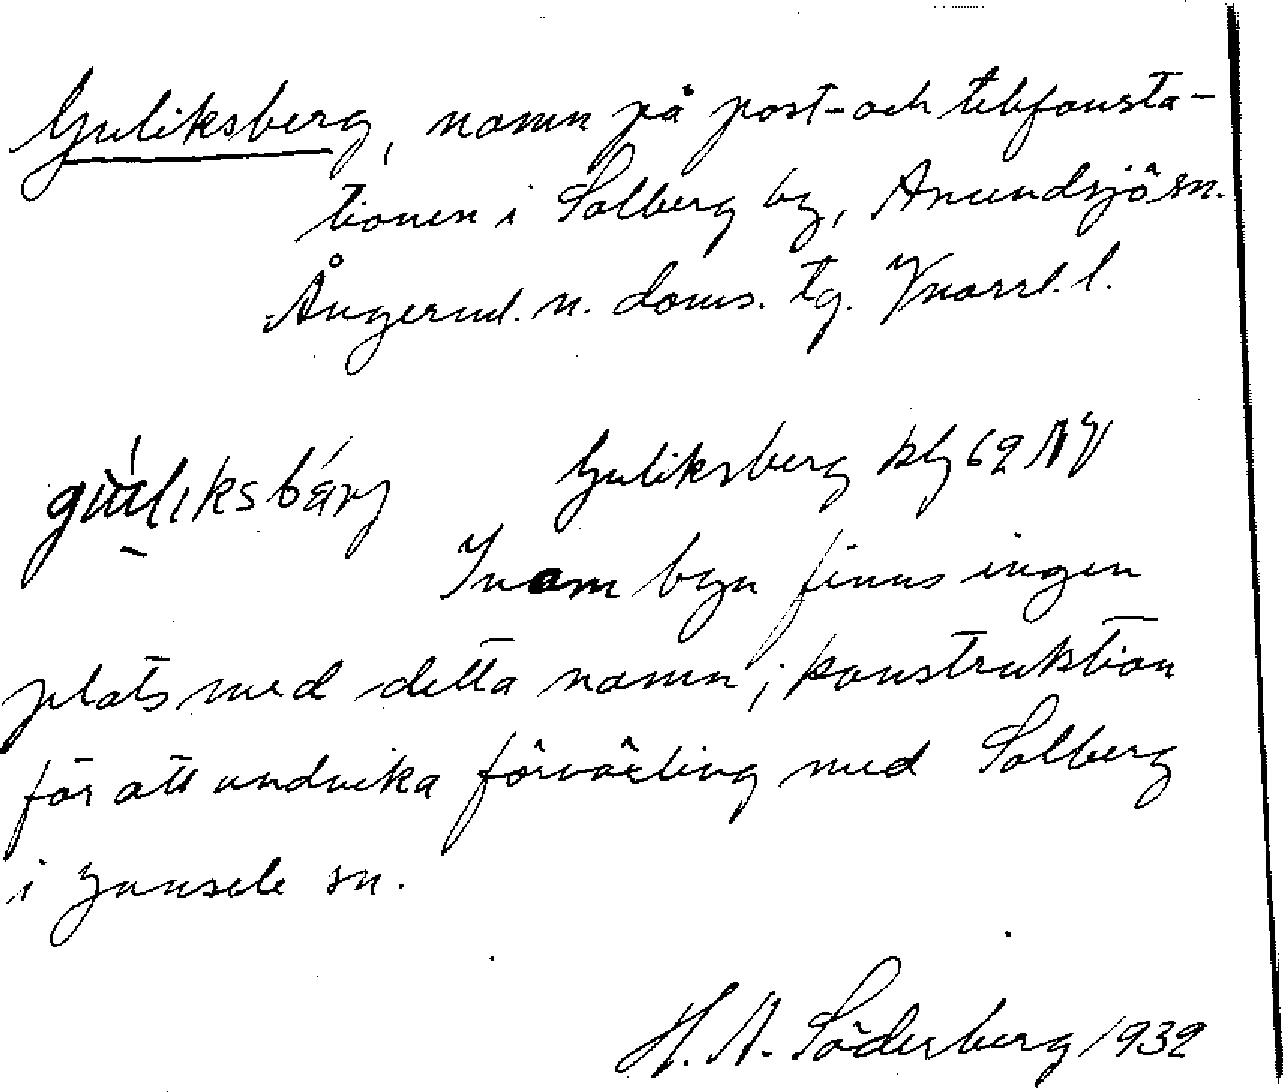 Guliksberg, namn på post- och telefonsta-
tionen i Solberg by, Anundsjö sn.
Ångerml. n. doms. tg. Vnorrl. l.
Guliksberg klg 62 NV
Inom byn finns ingen
plats med detta namn; konstruktion
för att undvika förväxling med Solberg
i Junsele sn.
H. A. Söderberg 1932